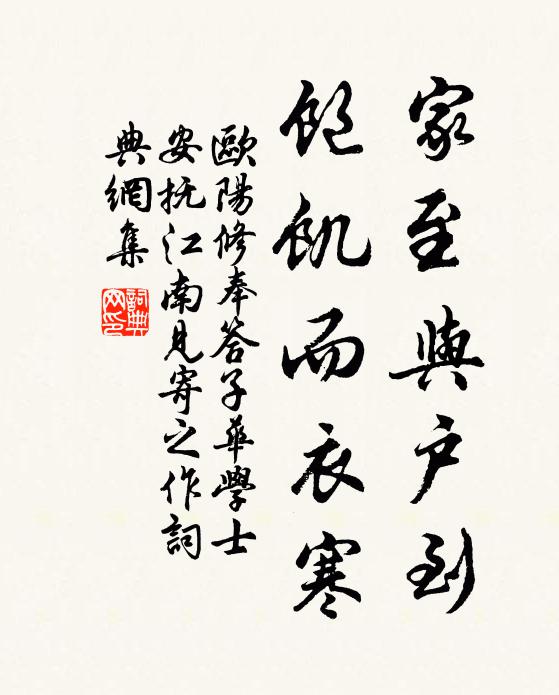 家至與户到
飽飢而衣寒
歐陽修奉答子華學士
安抚江南見寄之作詞
典網集
詞典网印